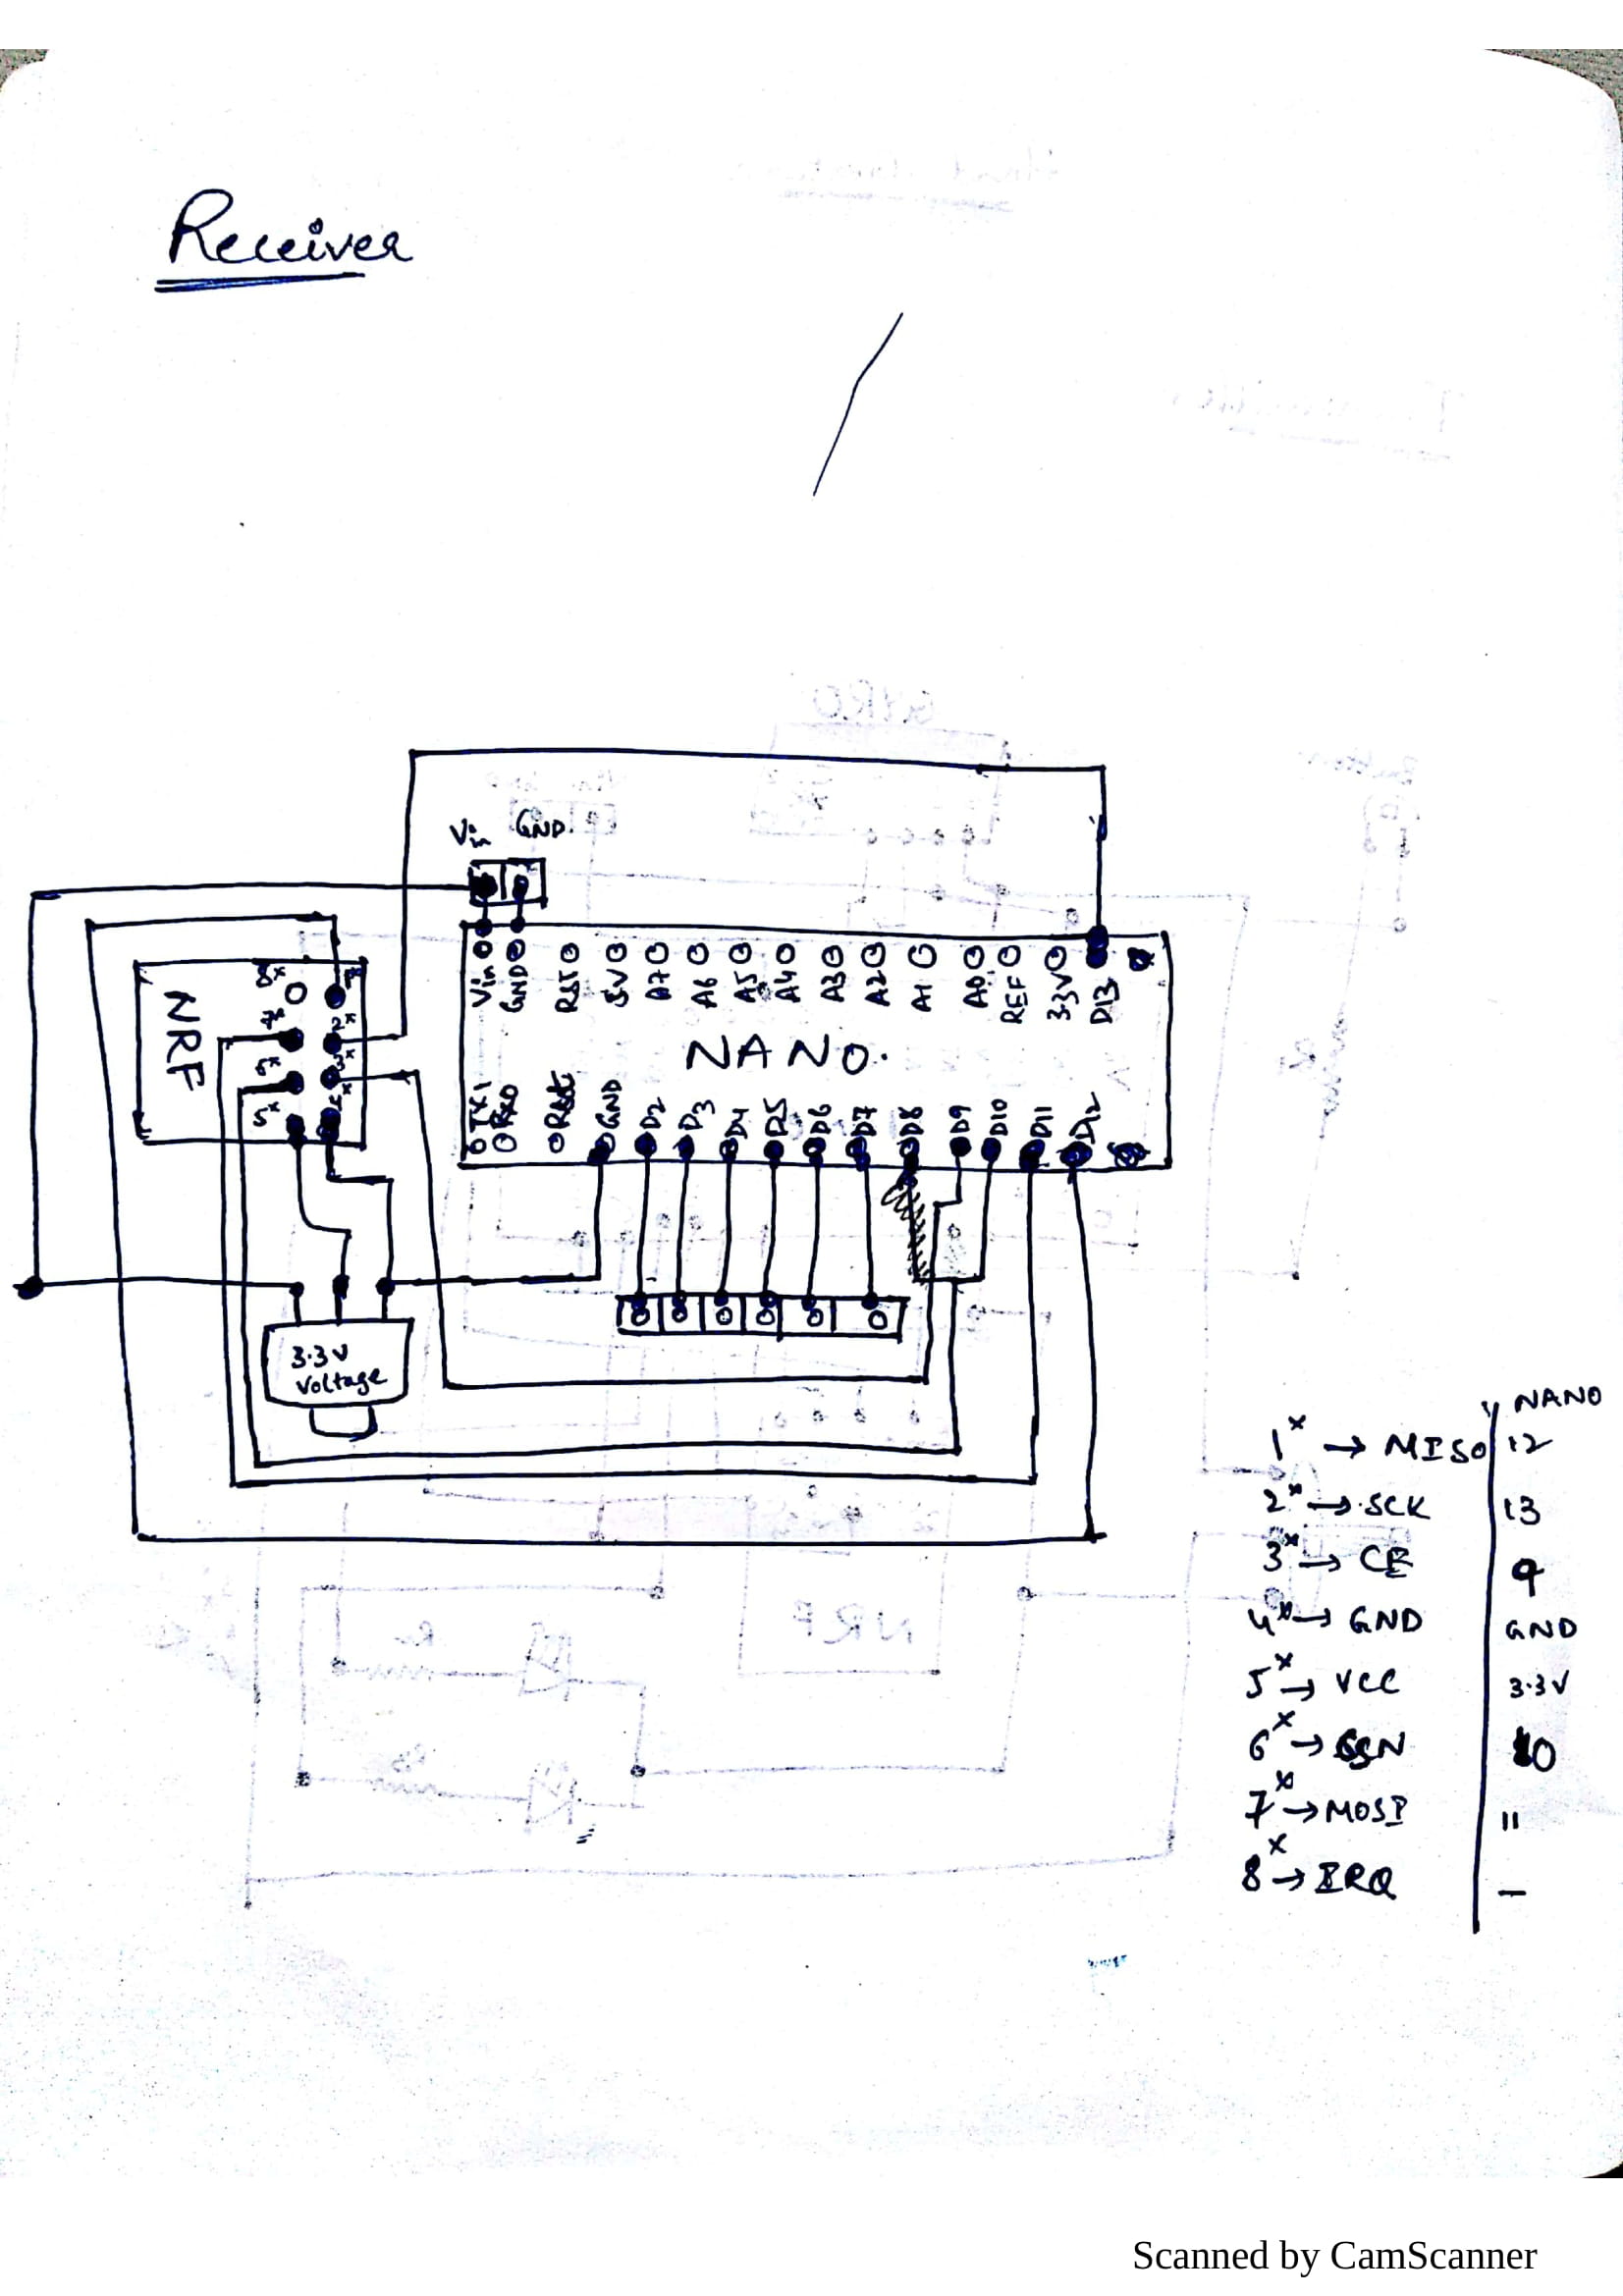 Receiver
Vin GND.
Vin GND RST 5V A7 A6 A5 A4 A3 A2 A1 A0 REF 3.3V D13
NANO.
TX1 RX0 GND D2 D3 D4 D5 D6 D7 D8 D9 D10 D11 D12
NRF
8x
7x 2x
6x 3x
5x
3.3V
Voltage
NANO
1x → MISO 12
2x → SCK 13
3x → CE 9
4x → GND GND
5x → VCC 3.3V
6x → CSN 10
7x → MOSI 11
8x → IRQ —
GYRO
NRF
Scanned by CamScanner